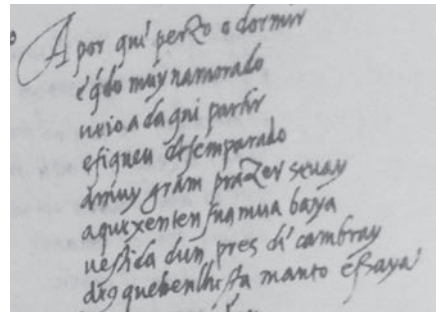 A por qui perzo o dormir
e g̃do muy namorado
ueio a daqui partir
e fiqueu desemparado
amuy gram prazer seuay
aquexenten sua mua baya
uestida dun pres di cambray
d' quebenlhista manto e saya